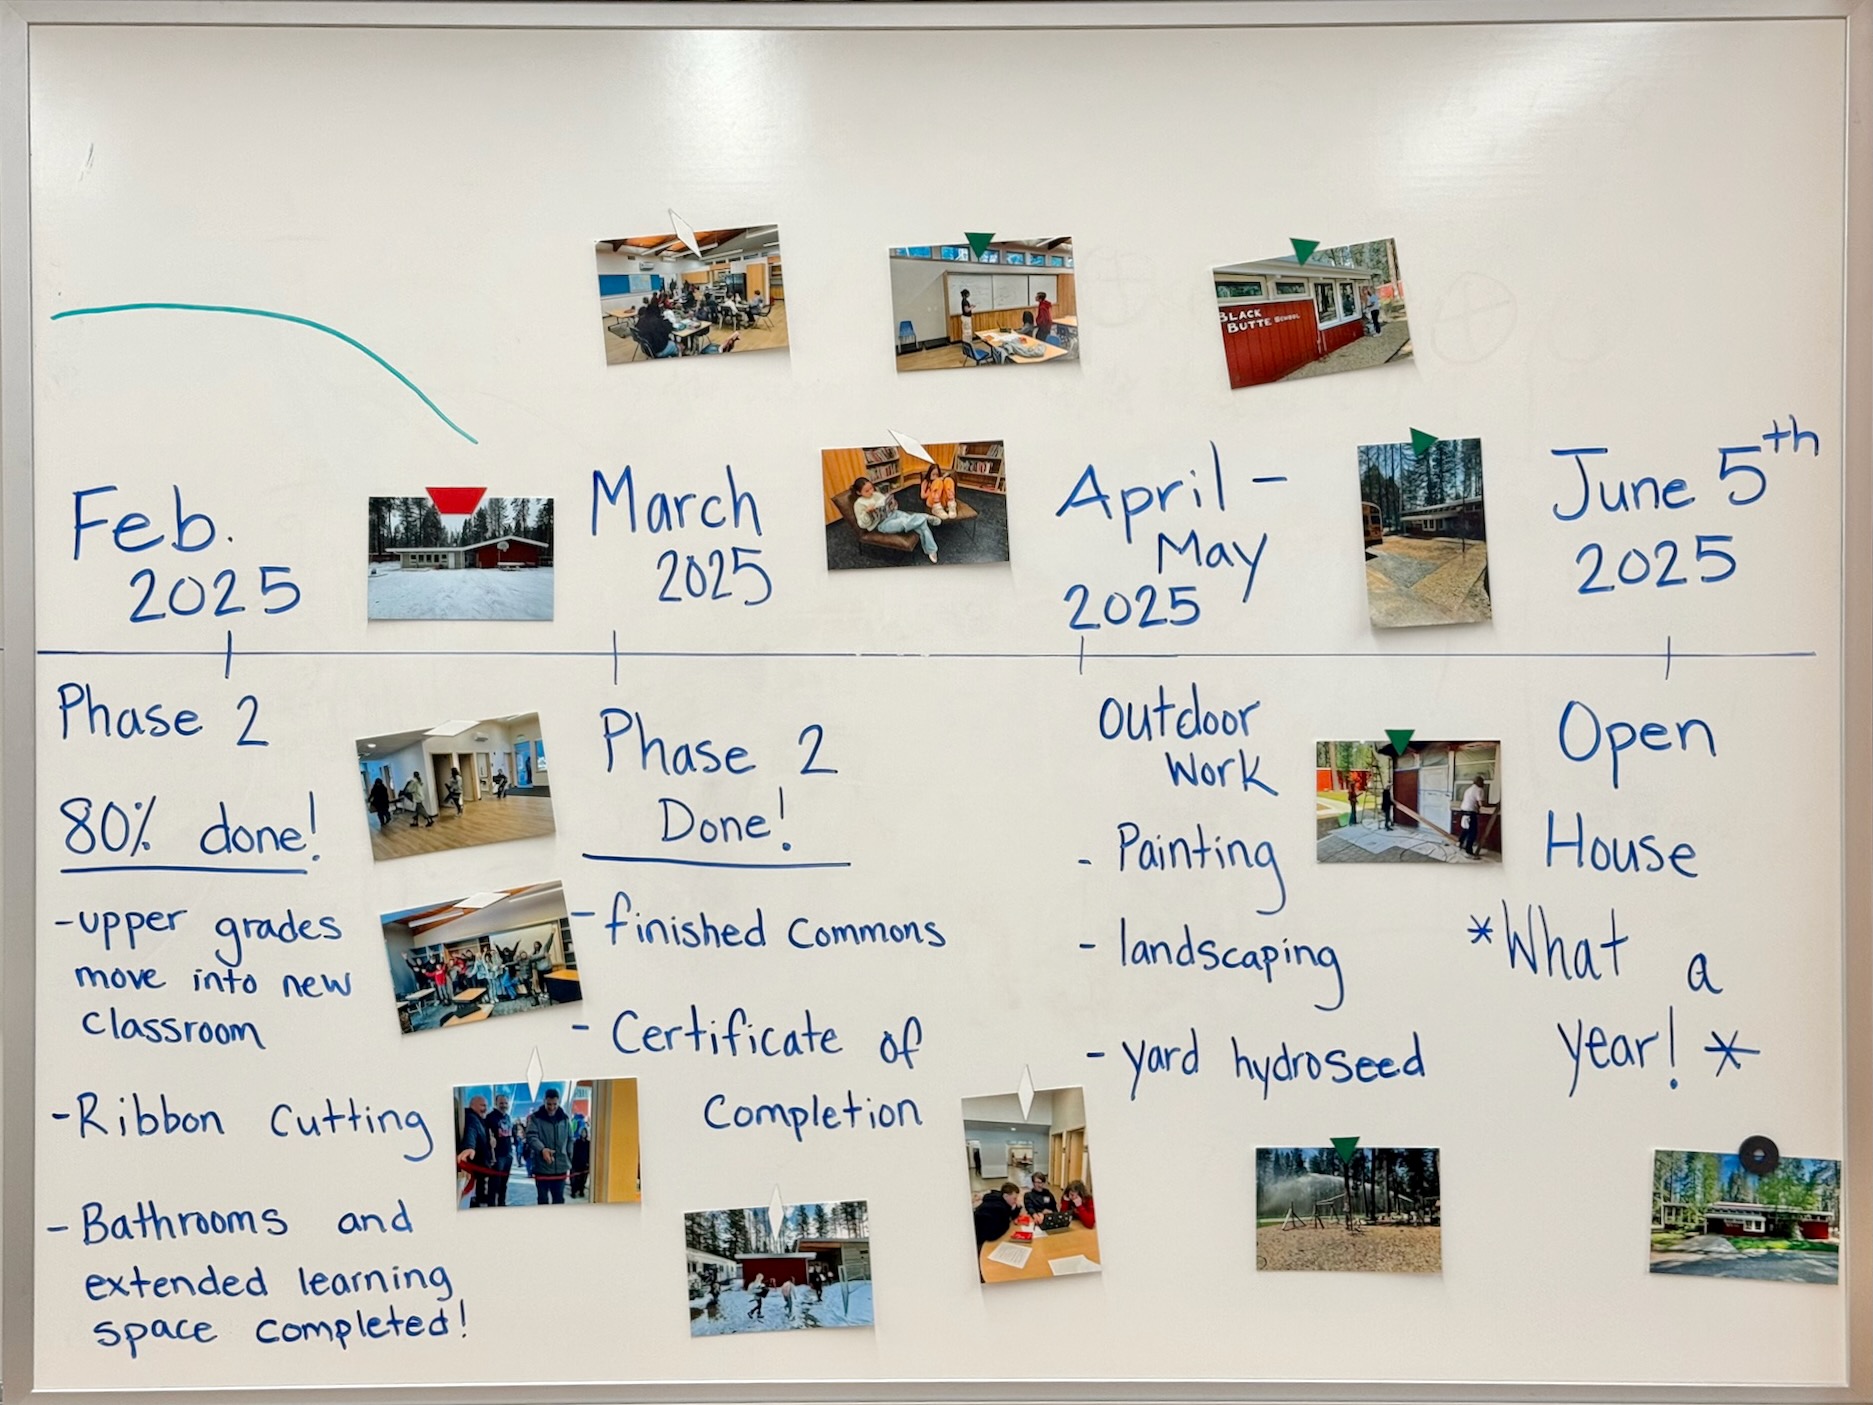 BLACK
BUTTE SCHOOL
Feb.
2025
March
2025
April -
May
2025
June 5th
2025
Phase 2
80% done!
- upper grades
move into new
classroom
- Ribbon Cutting
- Bathrooms and
extended learning
space completed!
Phase 2
Done!
- finished commons
- Certificate of
Completion
Outdoor
Work
- Painting
- landscaping
- yard hydroseed
Open
House
*What a
year! *